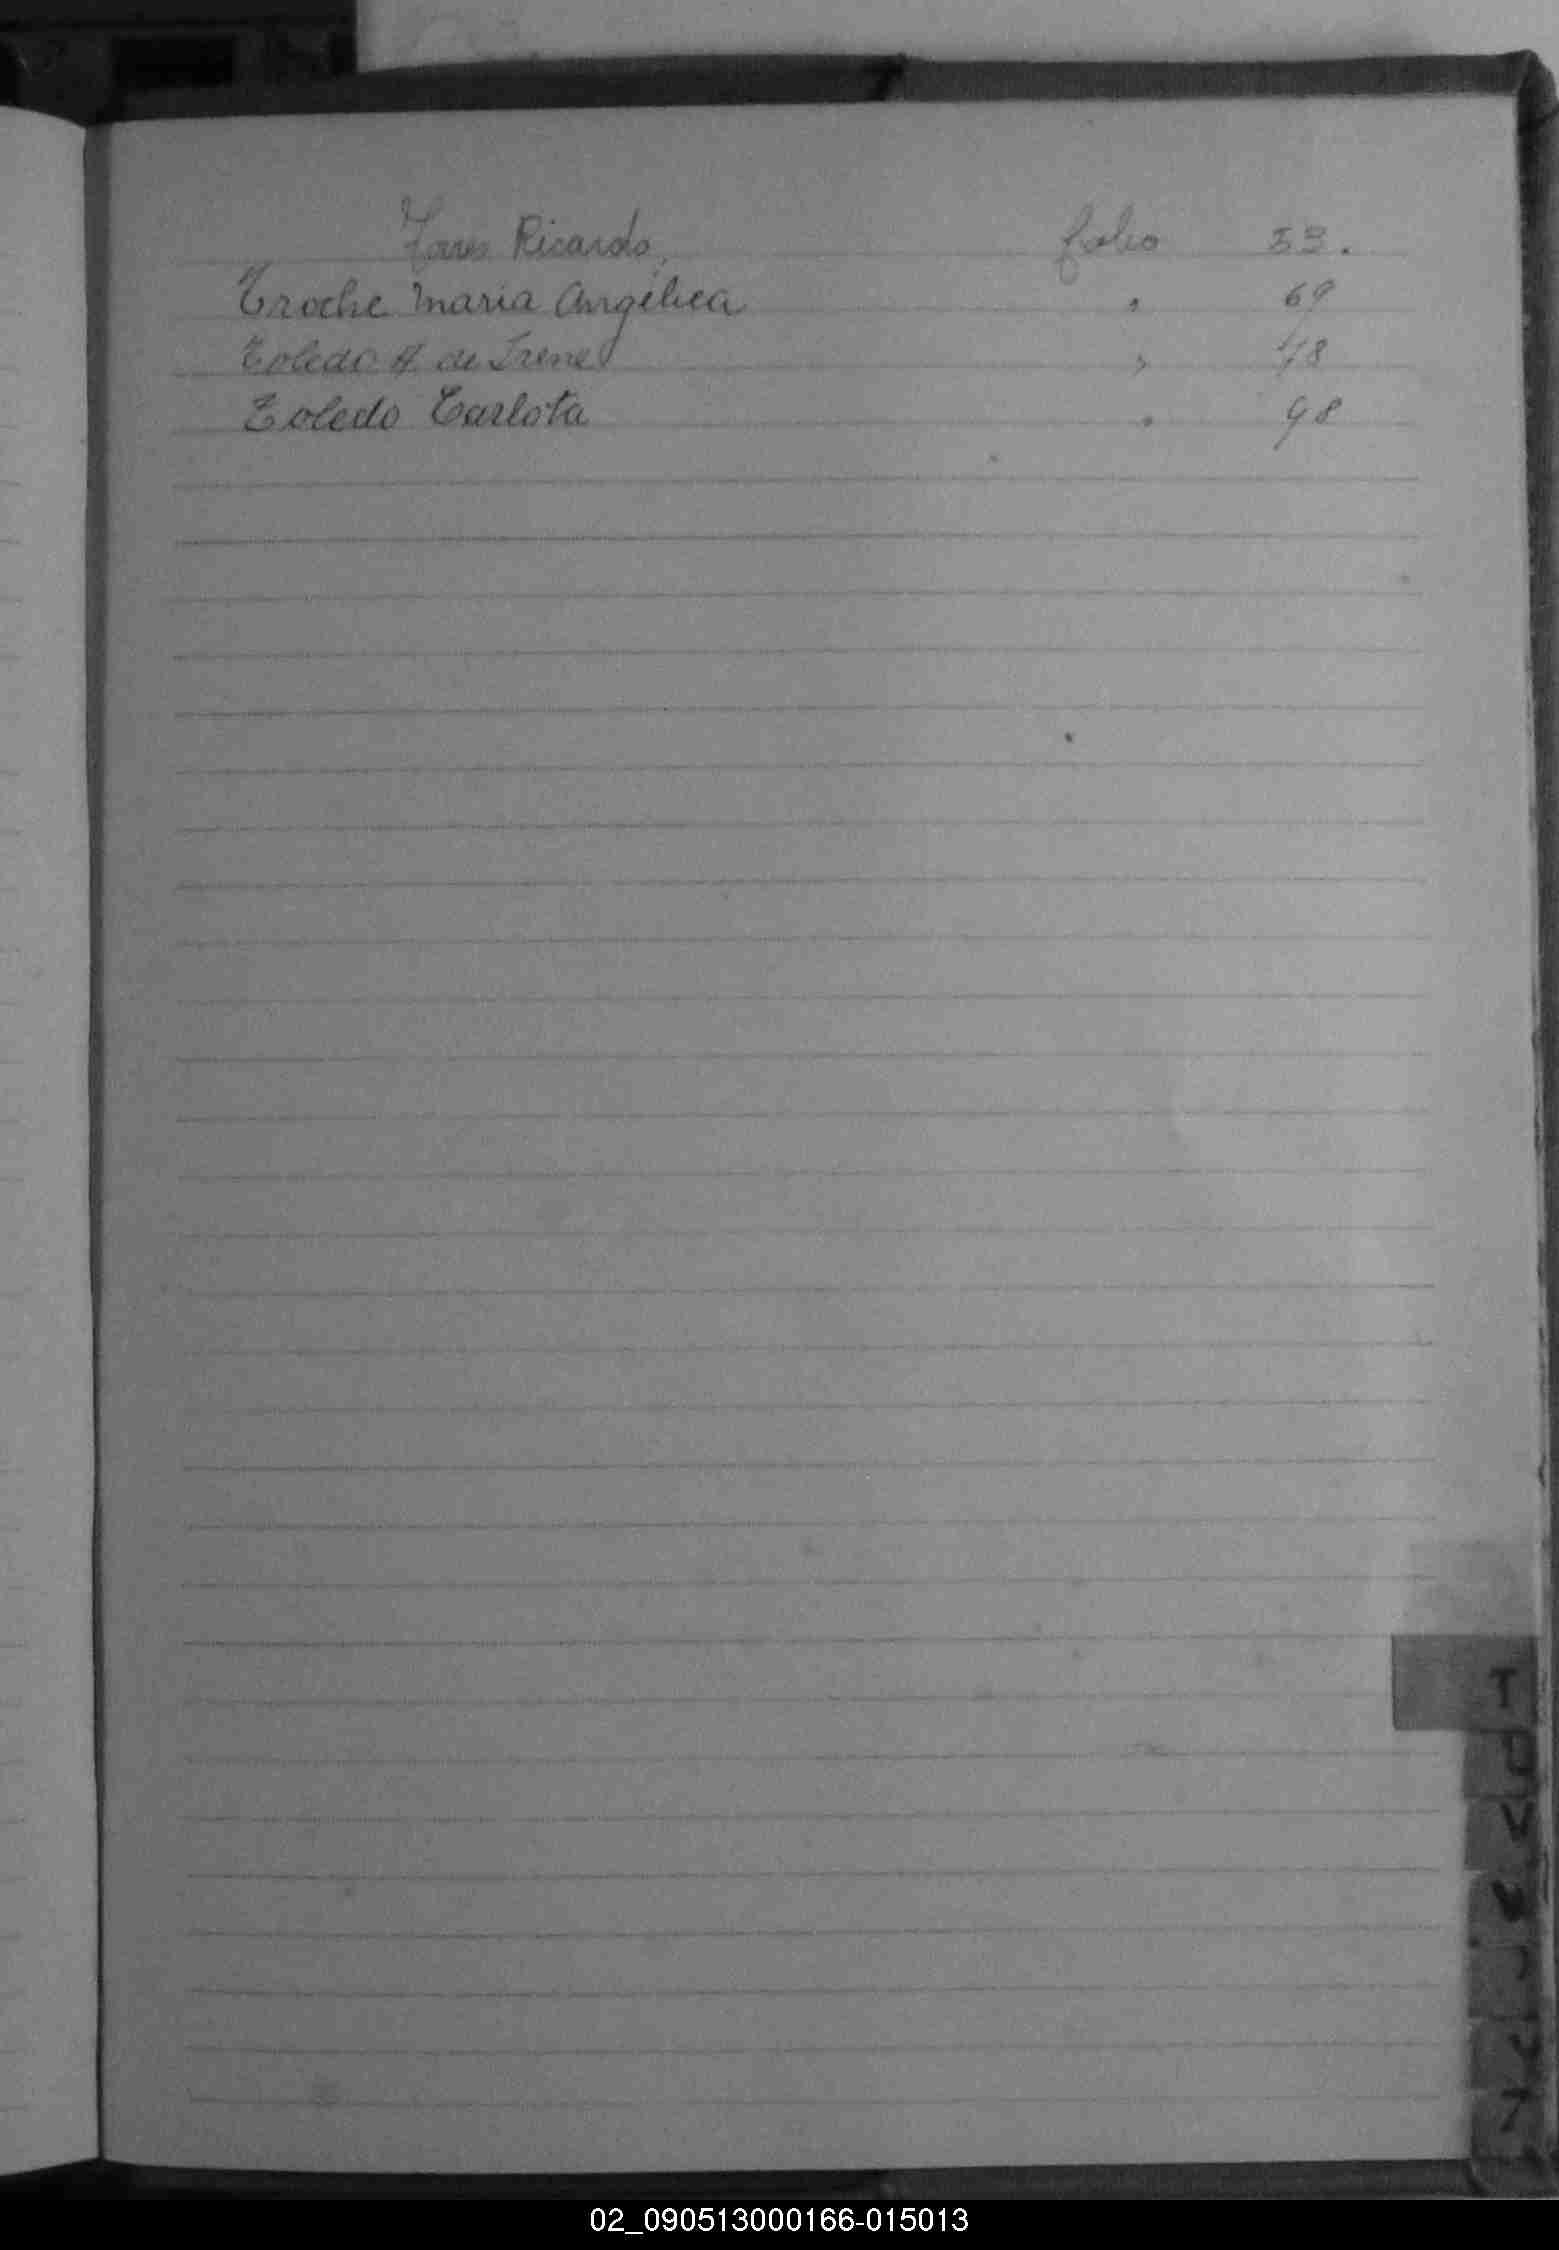 Ricardo, folio 53.
Troche Maria Angélica " 69
Toledo A. de Irene " 48
Toledo Carlota " 98
T
U
V
Y
Z
02_090513000166-015013